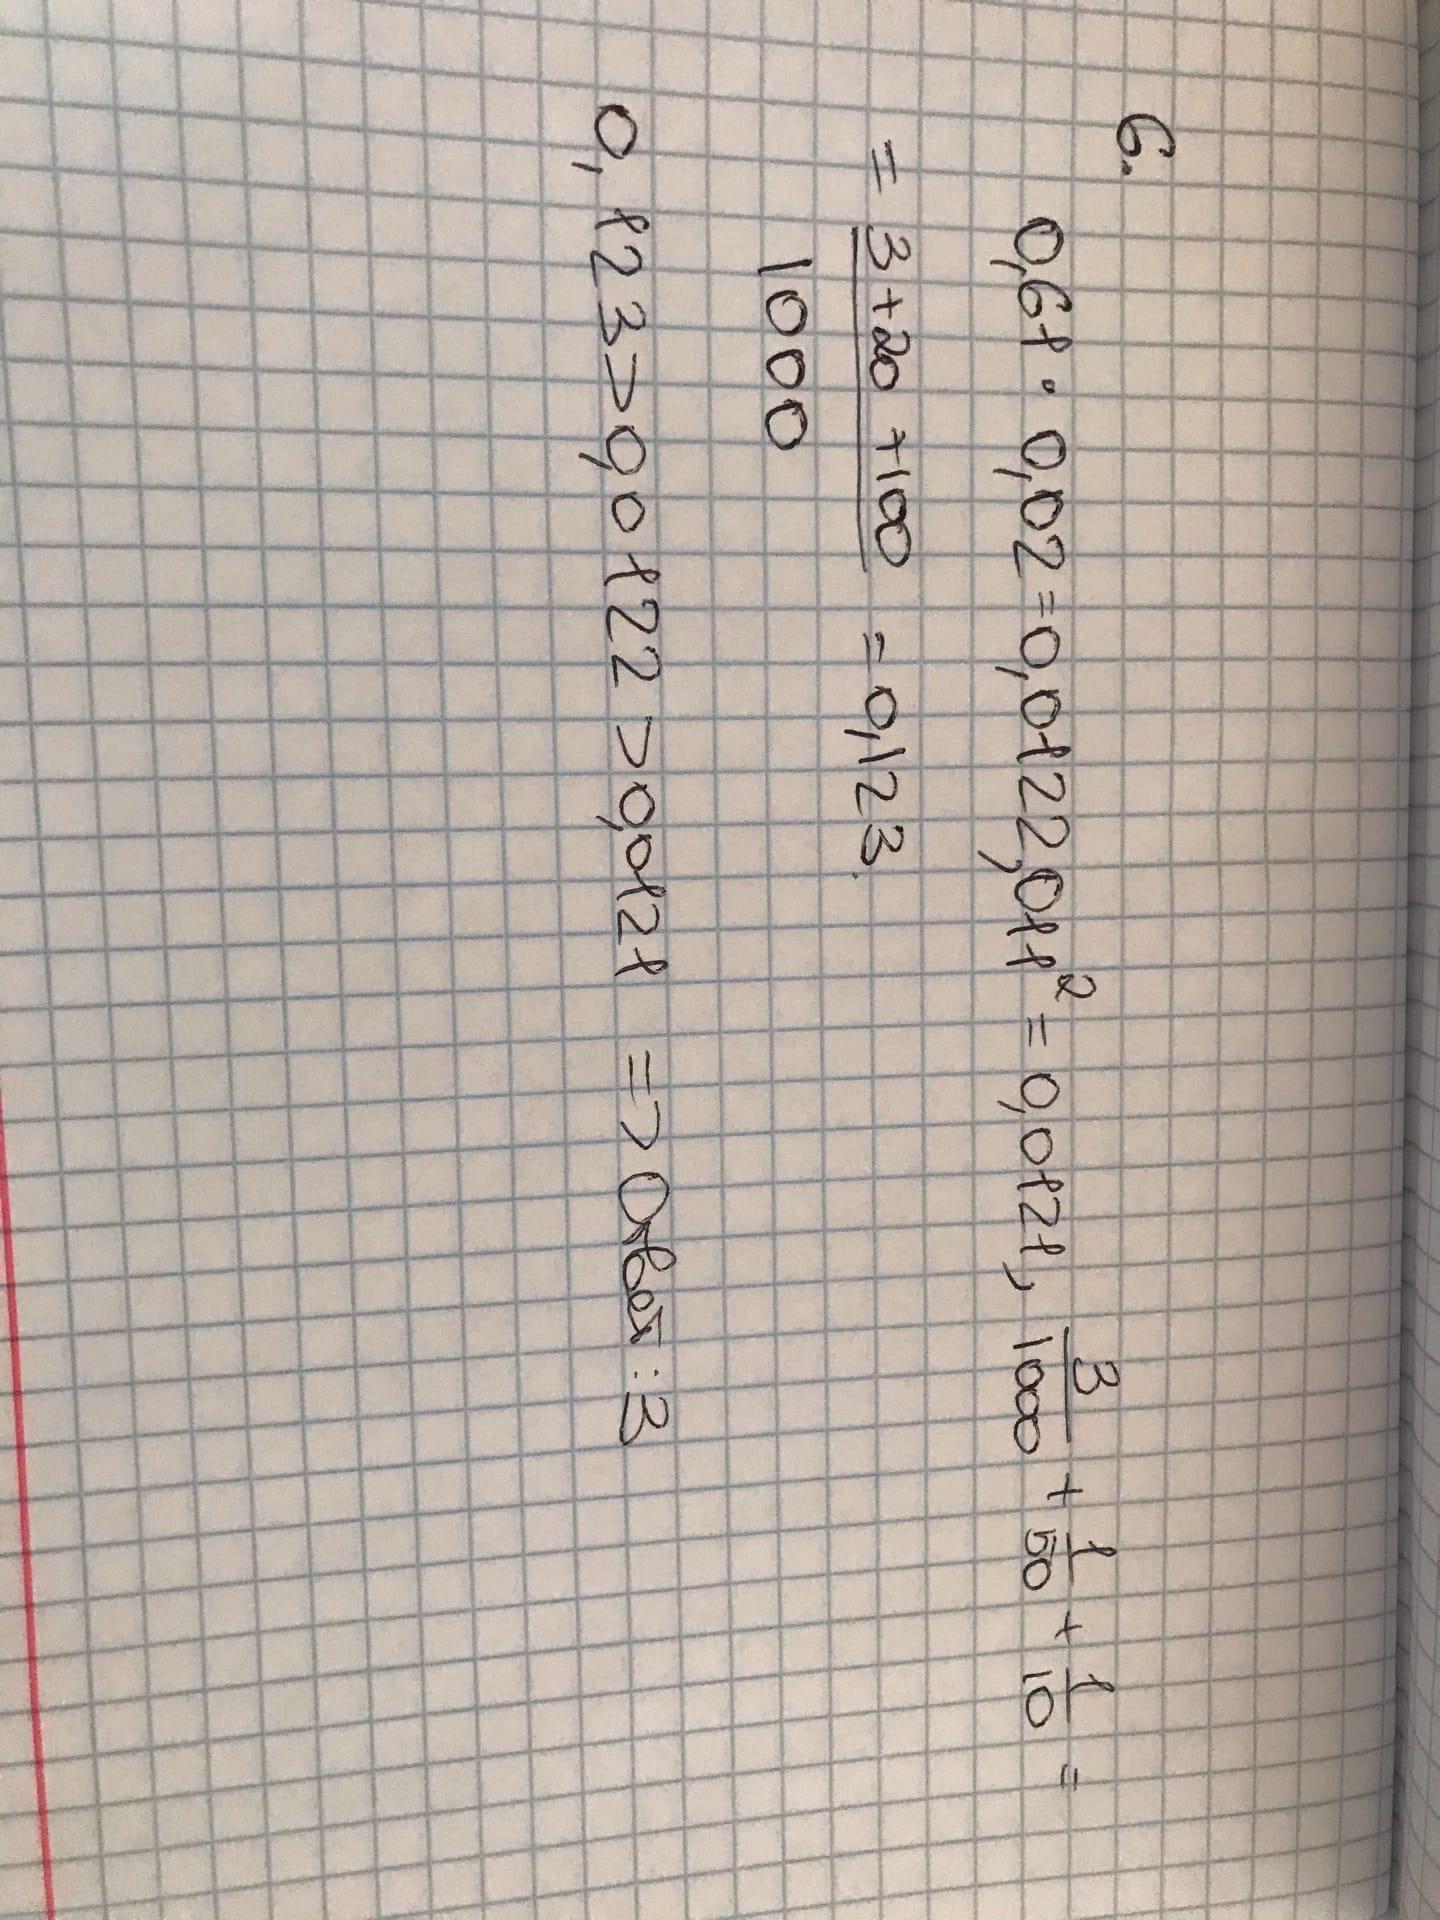 6.
0,61 · 0,02 = 0,0122, 0,11² = 0,0121, 3/1000 + 1/50 + 1/10 =
= (3+20+100)/1000 = 0,123.
0,123 > 0,0122 > 0,0121 => Ответ: 3